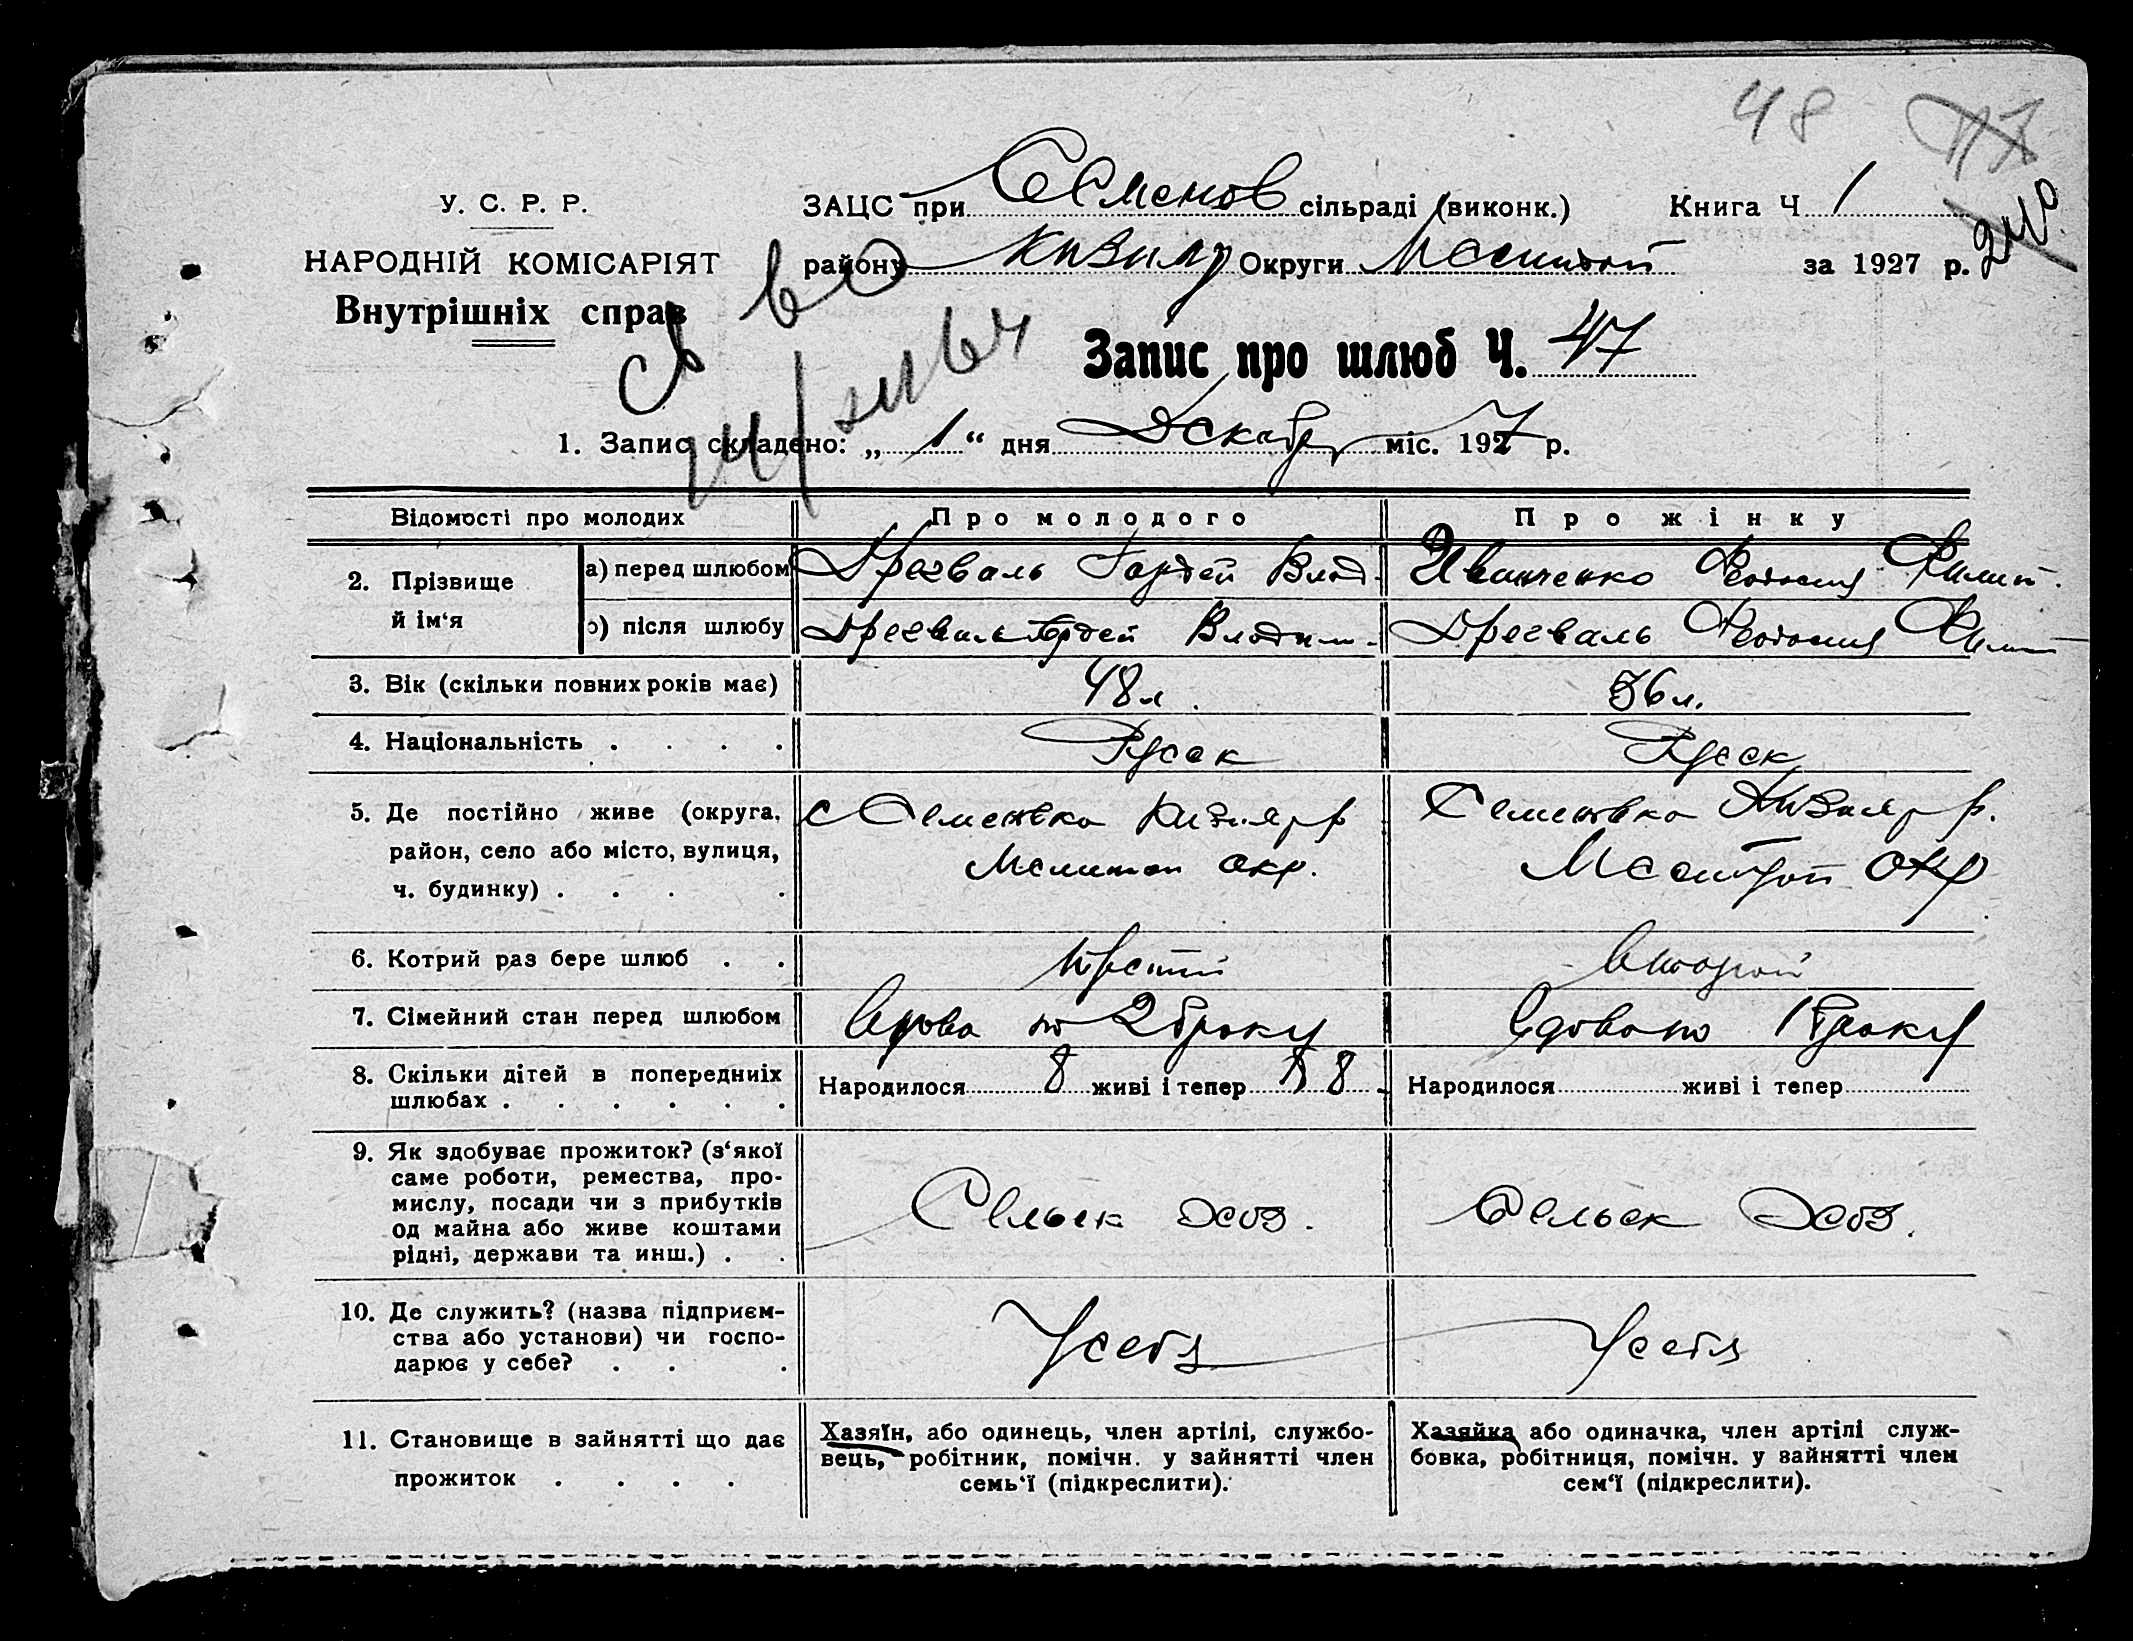 48 47
У. С. Р. Р.
НАРОДНІЙ КОМІСАРІЯТ
Внутрішніх справ
ЗАЦС при Семенов сільраді (виконк.) Книга Ч 1
району Кизияр Округи Мелитоп за 1927 р.
Запис про шлюб Ч. 47
1. Запис складено: „ 1 “ дня Декабр міс. 1927 р.
Відомості про молодих Про молодого Про жінку
2. Прізвище й ім‘я
а) перед шлюбом Дрегваль Гордей Влад. Иванченко Феодосия Филип.
б) після шлюбу Дрегваль Гордей Владим. Дрегваль Феодосия Филип
3. Вік (скільки повних років має) 48 л. 36 л.
4. Національність . . . . Русск Русск
5. Де постійно живе (округа, с Семеновка Кизияр р Семеновка Кизияр р.
район, село або місто, вулиця, Мелитоп окр. Мелитоп окр
ч. будинку) . . . .
6. Котрий раз бере шлюб . . третий второй
7. Сімейний стан перед шлюбом Вдова по 2 браку Вдова по 1 браку
8. Скільки дітей в попередниіх Народилося 8 живі і тепер 8 Народилося живі і тепер
шлюбах . . . . . .
9. Як здобуває прожиток? (з‘якої
саме роботи, ремества, про-
мислу, посади чи з прибутків Сельск хоз. Сельск хоз.
од майна або живе коштами
рідні, держави та инш.) . .
10. Де служить? (назва підприєм-
ства або установи) чи госпо- У себя У себя
дарює у себе? . . .
11. Становище в зайнятті що дає
прожиток . . . .
Хазяїн, або одинець, член артілі, службо-
вець, робітник, помічн. у зайнятті член
семь‘ї (підкреслити).
Хазяйка або одиначка, член артілі служ-
бовка, робітниця, помічн. у зайнятті член
сем‘ї (підкреслити).